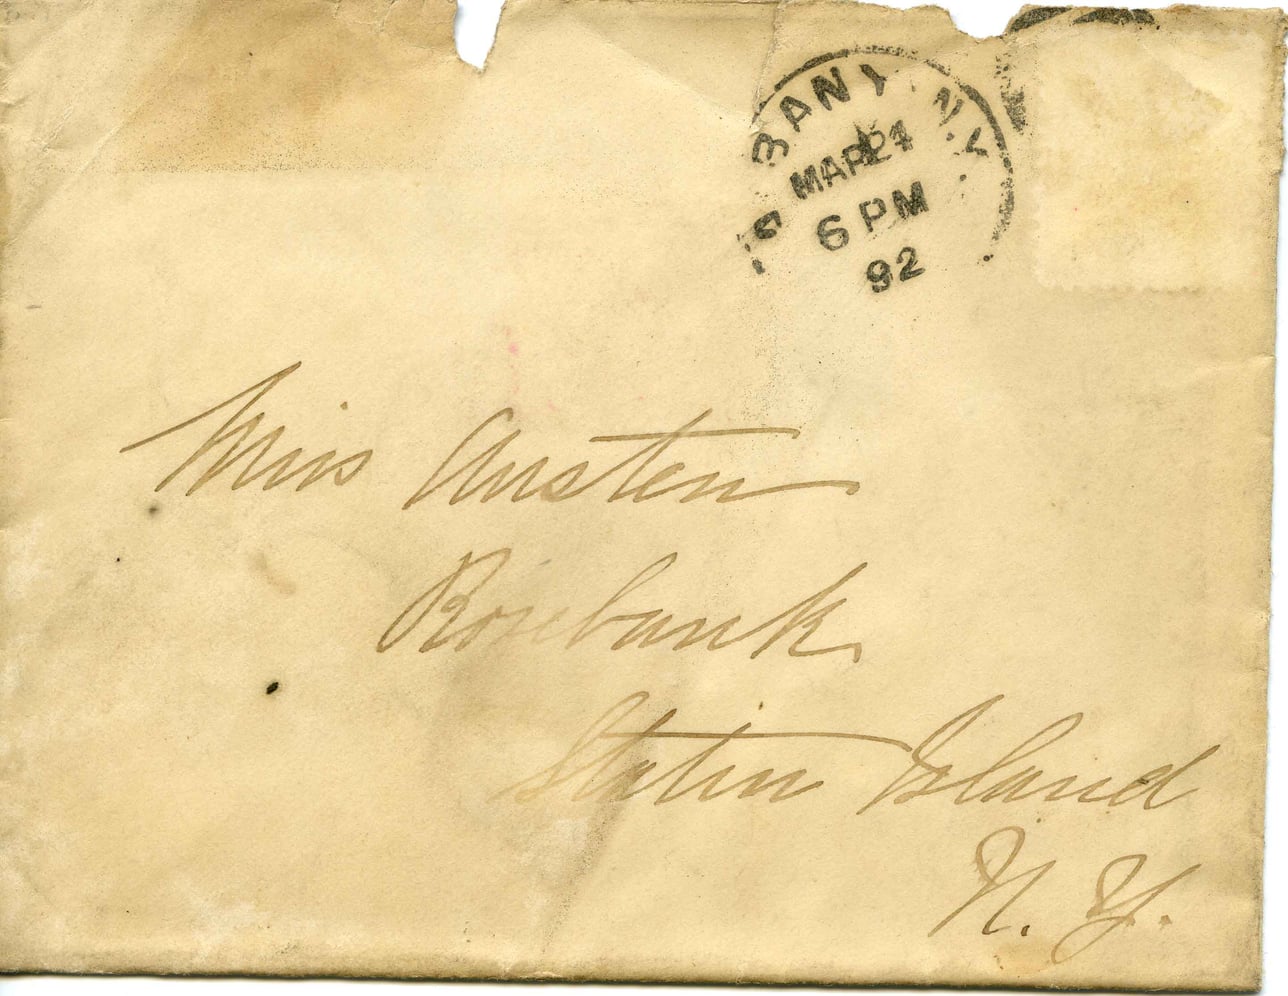 BANY. N.Y.
MAR 24
6 PM
92
Miss Austen
Rosebank
Staten Island
N. Y.